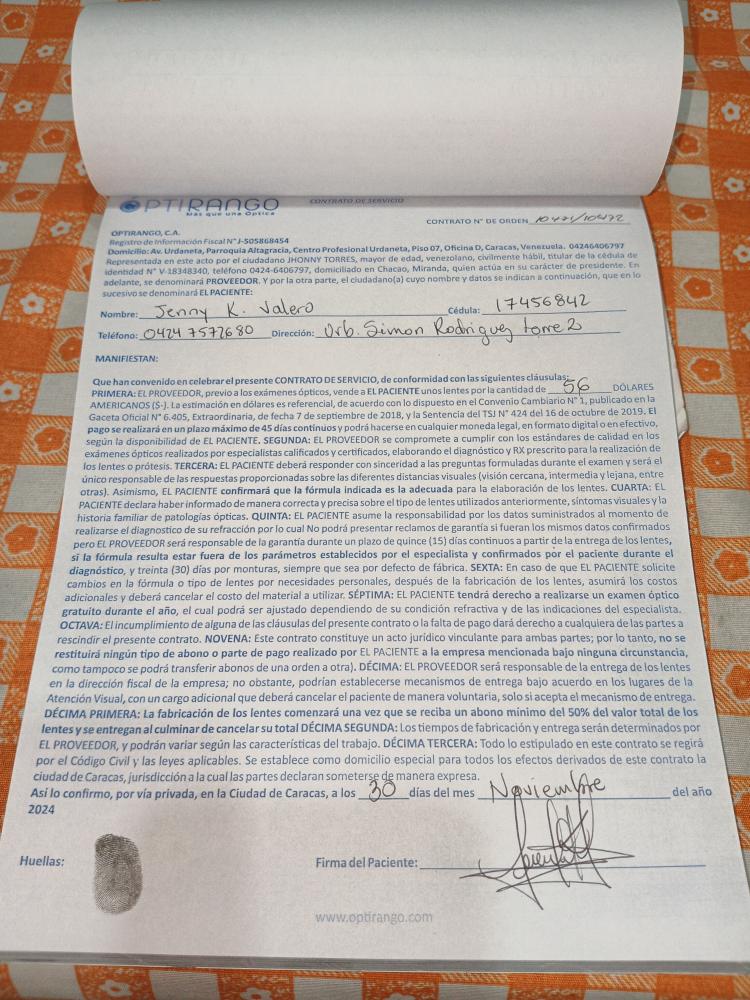 ÓPTIRANGO
Más que una Óptica
CONTRATO DE SERVICIO
CONTRATO N° DE ORDEN 10471/10472
OPTIRANGO, C.A.
Registro de Información Fiscal N° J-505868454
Domicilio: Av. Urdaneta, Parroquia Altagracia, Centro Profesional Urdaneta, Piso 07, Oficina D, Caracas, Venezuela. 04246406797
Representada en este acto por el ciudadano JHONNY TORRES, mayor de edad, venezolano, civilmente hábil, titular de la cédula de
identidad N° V-18348340, teléfono 0424-6406797, domiciliado en Chacao, Miranda, quien actúa en su carácter de presidente. En
adelante, se denominará PROVEEDOR. Y por la otra parte, el ciudadano(a) cuyo nombre y datos se indican a continuación, que en lo
sucesivo se denominará EL PACIENTE:
Nombre: Jenny K. Valero Cédula: 17456842
Teléfono: 0424 7572680 Dirección: Urb. Simon Rodriguez torre 2
MANIFIESTAN:
Que han convenido en celebrar el presente CONTRATO DE SERVICIO, de conformidad con las siguientes cláusulas:
PRIMERA: EL PROVEEDOR, previo a los exámenes ópticos, vende a EL PACIENTE unos lentes por la cantidad de 56 DÓLARES
AMERICANOS ($-). La estimación en dólares es referencial, de acuerdo con lo dispuesto en el Convenio Cambiario N° 1, publicado en la
Gaceta Oficial N° 6.405, Extraordinaria, de fecha 7 de septiembre de 2018, y la Sentencia del TSJ N° 424 del 16 de octubre de 2019. El
pago se realizará en un plazo máximo de 45 días continuos y podrá hacerse en cualquier moneda legal, en formato digital o en efectivo,
según la disponibilidad de EL PACIENTE. SEGUNDA: EL PROVEEDOR se compromete a cumplir con los estándares de calidad en los
exámenes ópticos realizados por especialistas calificados y certificados, elaborando el diagnóstico y RX prescrito para la realización de
los lentes o prótesis. TERCERA: EL PACIENTE deberá responder con sinceridad a las preguntas formuladas durante el examen y será el
único responsable de las respuestas proporcionadas sobre las diferentes distancias visuales (visión cercana, intermedia y lejana, entre
otras). Asimismo, EL PACIENTE confirmará que la fórmula indicada es la adecuada para la elaboración de los lentes. CUARTA: EL
PACIENTE declara haber informado de manera correcta y precisa sobre el tipo de lentes utilizados anteriormente, síntomas visuales y la
historia familiar de patologías ópticas. QUINTA: EL PACIENTE asume la responsabilidad por los datos suministrados al momento de
realizarse el diagnostico de su refracción por lo cual No podrá presentar reclamos de garantía si fueran los mismos datos confirmados
pero EL PROVEEDOR será responsable de la garantía durante un plazo de quince (15) días continuos a partir de la entrega de los lentes,
si la fórmula resulta estar fuera de los parámetros establecidos por el especialista y confirmados por el paciente durante el
diagnóstico, y treinta (30) días por monturas, siempre que sea por defecto de fábrica. SEXTA: En caso de que EL PACIENTE solicite
cambios en la fórmula o tipo de lentes por necesidades personales, después de la fabricación de los lentes, asumirá los costos
adicionales y deberá cancelar el costo del material a utilizar. SÉPTIMA: EL PACIENTE tendrá derecho a realizarse un examen óptico
gratuito durante el año, el cual podrá ser ajustado dependiendo de su condición refractiva y de las indicaciones del especialista.
OCTAVA: El incumplimiento de alguna de las cláusulas del presente contrato o la falta de pago dará derecho a cualquiera de las partes a
rescindir el presente contrato. NOVENA: Este contrato constituye un acto jurídico vinculante para ambas partes; por lo tanto, no se
restituirá ningún tipo de abono o parte de pago realizado por EL PACIENTE a la empresa mencionada bajo ninguna circunstancia,
como tampoco se podrá transferir abonos de una orden a otra). DÉCIMA: EL PROVEEDOR será responsable de la entrega de los lentes
en la dirección fiscal de la empresa; no obstante, podrían establecerse mecanismos de entrega bajo acuerdo en los lugares de la
Atención Visual, con un cargo adicional que deberá cancelar el paciente de manera voluntaria, solo si acepta el mecanismo de entrega.
DÉCIMA PRIMERA: La fabricación de los lentes comenzará una vez que se reciba un abono mínimo del 50% del valor total de los
lentes y se entregan al culminar de cancelar su total DÉCIMA SEGUNDA: Los tiempos de fabricación y entrega serán determinados por
EL PROVEEDOR, y podrán variar según las características del trabajo. DÉCIMA TERCERA: Todo lo estipulado en este contrato se regirá
por el Código Civil y las leyes aplicables. Se establece como domicilio especial para todos los efectos derivados de este contrato la
ciudad de Caracas, jurisdicción a la cual las partes declaran someterse de manera expresa.
Así lo confirmo, por vía privada, en la Ciudad de Caracas, a los 30 días del mes Noviembre del año
2024
Huellas:
Firma del Paciente:
www.optirango.com